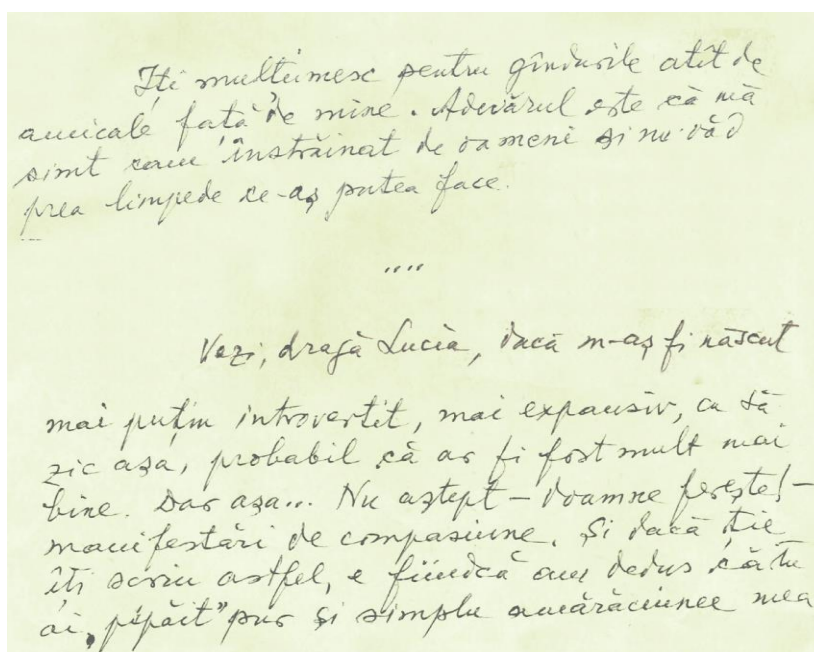 Îți mulțumesc pentru gîndurile atît de
amicale față de mine. Adevărul este că mă
simt cam înstrăinat de oameni și nu văd
prea limpede ce-aș putea face.
....
Vezi, dragă Lucia, dacă m-aș fi născut
mai puțin introvertit, mai expansiv, ca să
zic așa, probabil că ar fi fost mult mai
bine. Dar așa... Nu aștept – doamne ferește! –
manifestări de compasiune. Și dacă ție
îți scriu astfel, e fiindcă am dedus că tu
ai „pipăit” pur și simplu amărăciunea mea